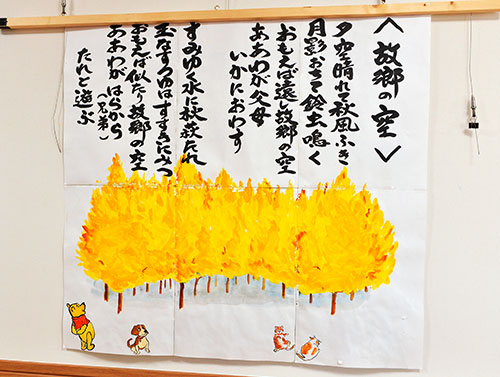 ＜故郷の空＞
夕空晴れて秋風ふき
月影おちて鈴虫鳴く
おもえば遠し故郷の空
ああわが父母
いかにおわす
すみゆく水に秋萩たれ
玉なすつゆはすすきにみつ
おもえば似たり故郷の空
ああわがはらから
（兄弟）
たれと遊ぶ